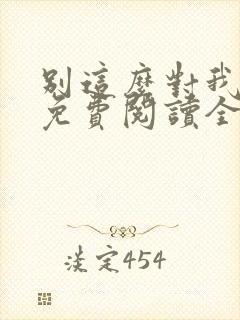 別這麼對我
免費閱讀全
淡定454